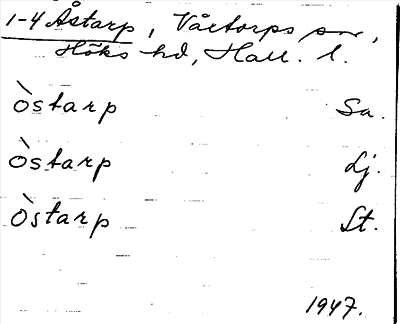 1-4 Åstarp, Vårtorps sn,
Höks hd, Hall. l.
Òstarp Sa.
Òstarp Lj.
Òstarp St.
1947.